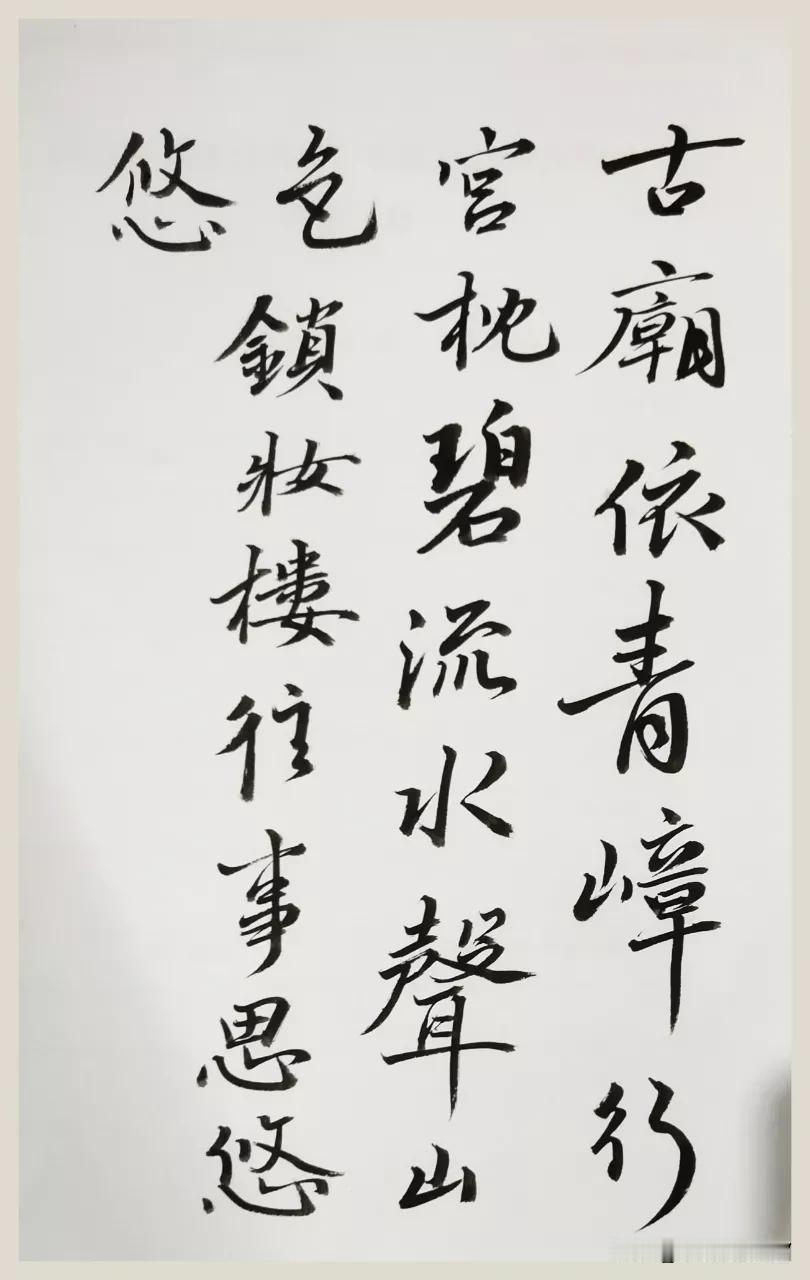 古廟依青嶂行
宮枕碧流水聲山
色鎖妝樓往事思悠
悠